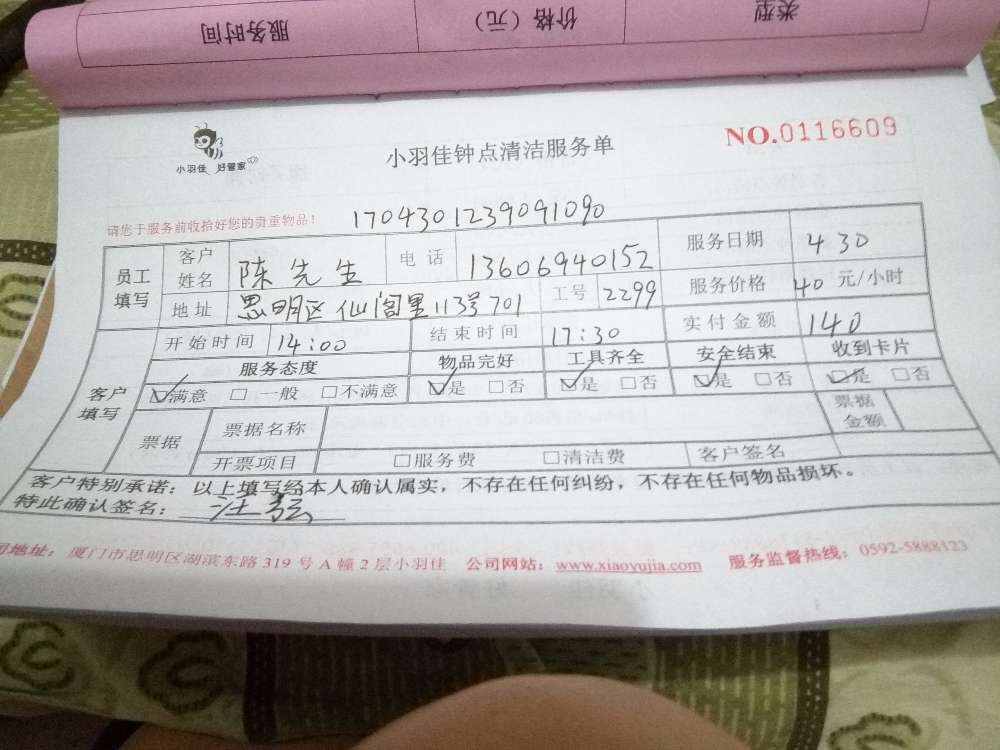 服务时间 价格（元） 类型
小羽佳 好管家
小羽佳钟点清洁服务单
NO.0116609
请您于服务前收拾好您的贵重物品！ 1704301239091090
员工填写 客户姓名 陈先生 电话 13606940152 服务日期 4 30
地址 思明区仙阁里113号701 工号 2299 服务价格 40 元/小时
客户填写 开始时间 14:00 结束时间 17:30 实付金额 140
服务态度 物品完好 工具齐全 安全结束 收到卡片
☑满意 □一般 □不满意 ☑是 □否 ☑是 □否 ☑是 □否 ☑是 □否
票据 票据名称 票据金额
开票项目 □服务费 □清洁费 客户签名
客户特别承诺：以上填写经本人确认属实，不存在任何纠纷，不存在任何物品损坏。
特此确认签名：
司地址：厦门市思明区湖滨东路319号A幢2层小羽佳 公司网站：www.xiaoyujia.com 服务监督热线：0592-5888123